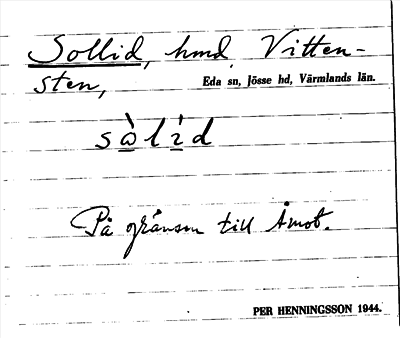 Sollid, hmd Vitten-
sten, Eda sn, Jösse hd, Värmlands län.
sòlíd
På gränsen till Åmot.
PER HENNINGSSON 1944.